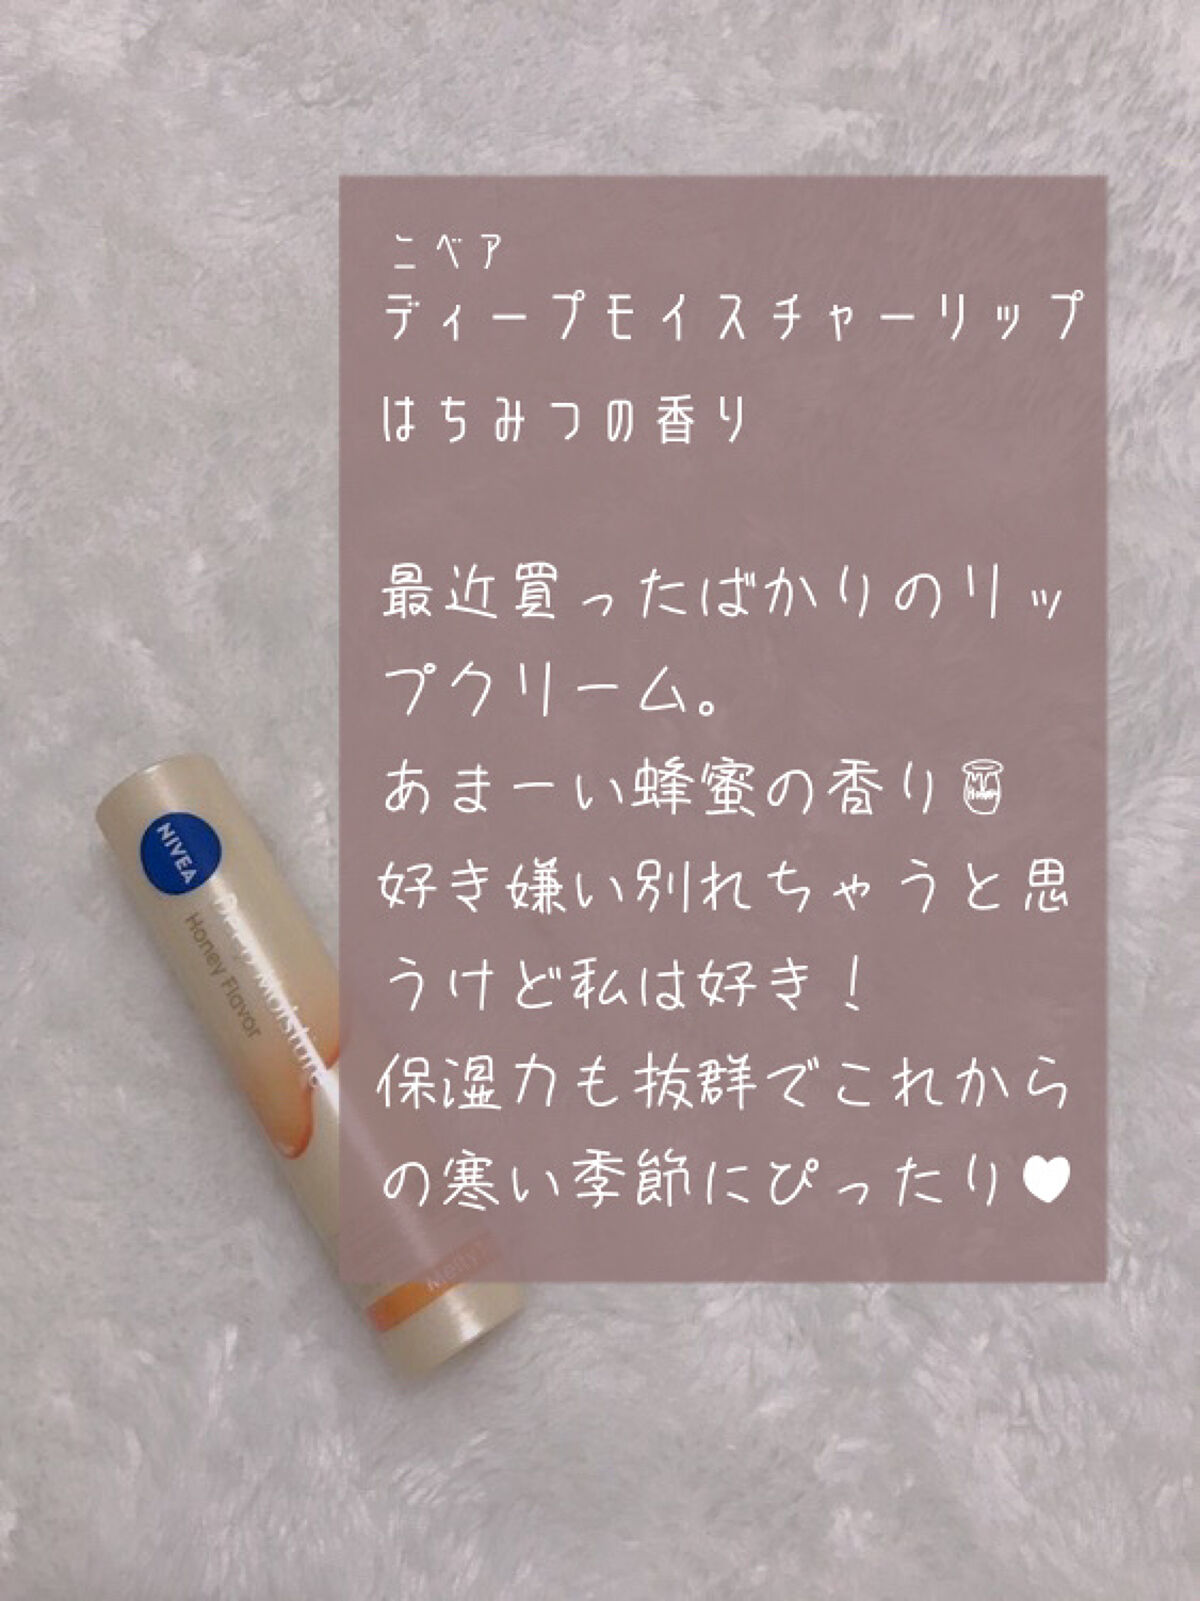 ニベア
ディープモイスチャーリップ
はちみつの香り
最近買ったばかりのリッ
プクリーム。
あまーい蜂蜜の香り🍯
好き嫌い別れちゃうと思
うけど私は好き！
保湿力も抜群でこれから
の寒い季節にぴったり♥
NIVEA
Deep Moisture
Honey Flavor
Melty